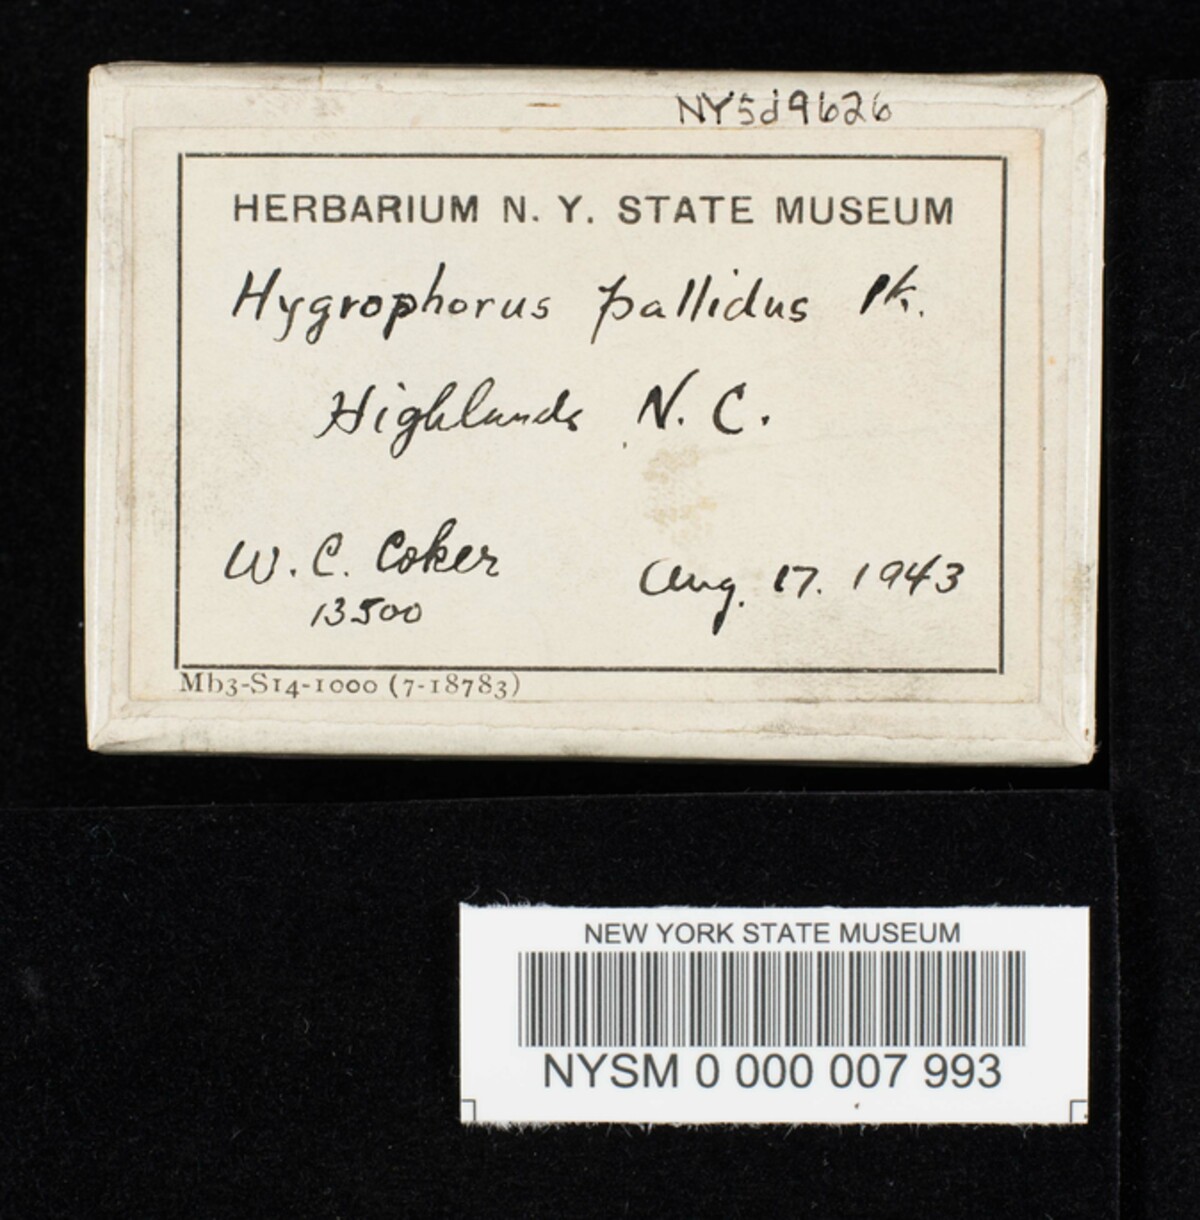 NYSd9626
HERBARIUM N. Y. STATE MUSEUM
Hygrophorus pallidus Pk.
Highlands N. C.
W. C. Coker
13500
Aug. 17. 1943
Mb3-S14-1000 (7-18783)
NEW YORK STATE MUSEUM
NYSM 0 000 007 993